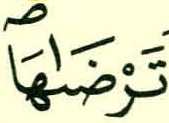 تَرْضَاهَا